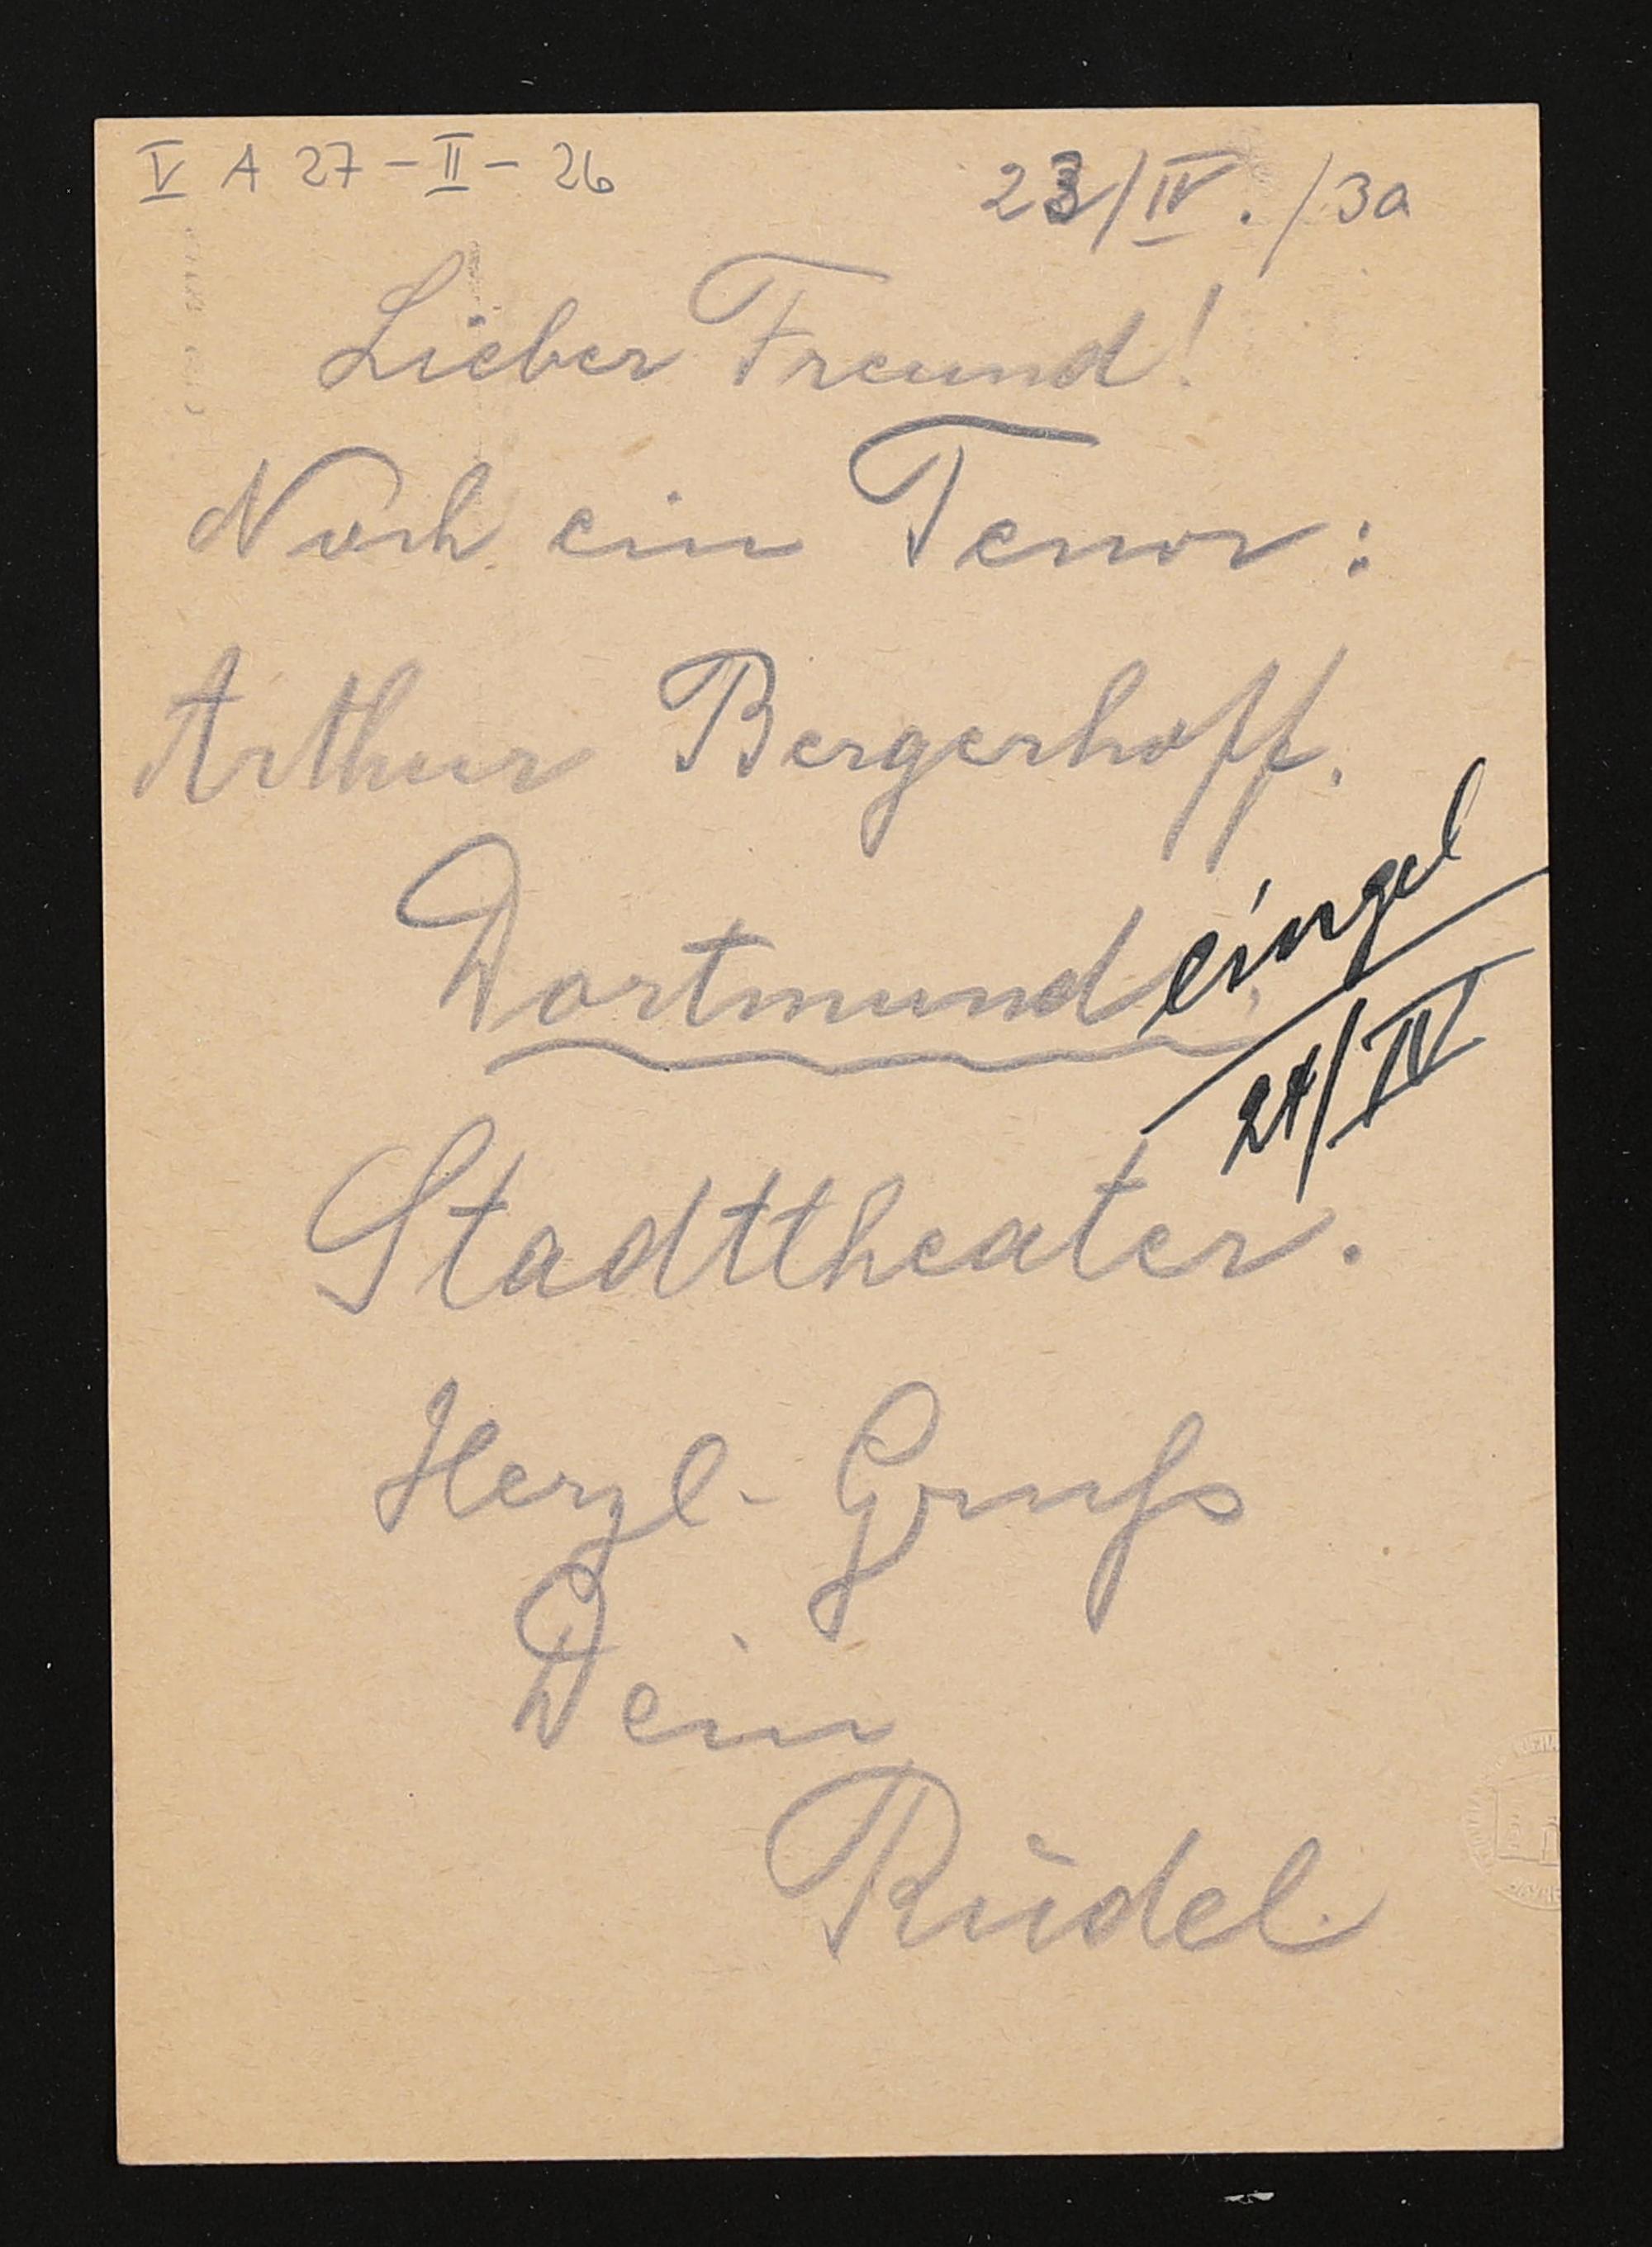 V A 27-II-26
23/IV./30
Lieber Freund!
Noch ein Tenor:
Arthur Bergerhoff.
Dortmund
eingel
24/IV
Stadttheater.
Herzl. Gruß
Dein
Rüdel